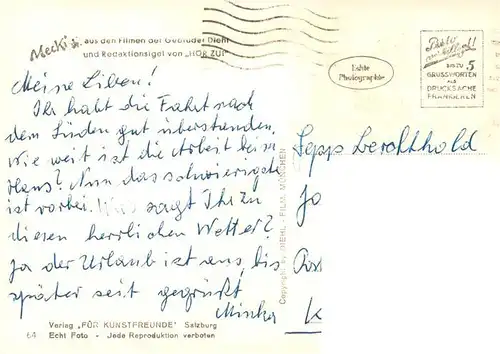 Mecki
aus den Filmen der Gebrüder Diehl
und Redaktionsigel von „HÖR ZU!"
Echte
Photographie
BIS ZU 5
GRUSSWORTEN
ALS
DRUCKSACHE
FRANKIEREN
Meine Lieben!
Ihr habt die Fahrt nach
dem Süden gut überstanden.
Wie weit ist die Arbeit beim
Haus? Nun das schwierigste
ist vorbei. Was sagt Ihr zu
diesen herrlichen Wetter?
Ja der Urlaub ist aus, bis
später seit gegrüßt
Minka
Sepp Berchthold
Copyright by DIEHL-FILM, MÜNCHEN
Verlag „FÜR KUNSTFREUNDE" Salzburg
64 Echt Foto - Jede Reproduktion verboten